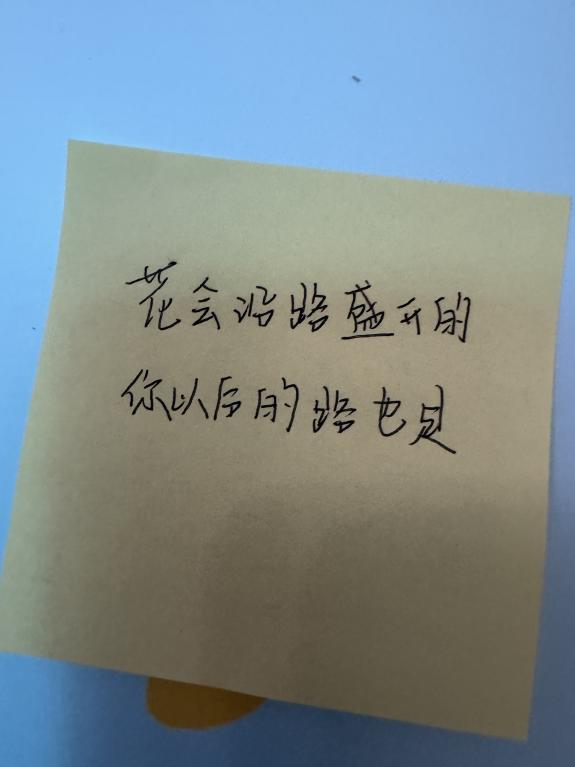 花会沿路盛开的
你以后的路也是